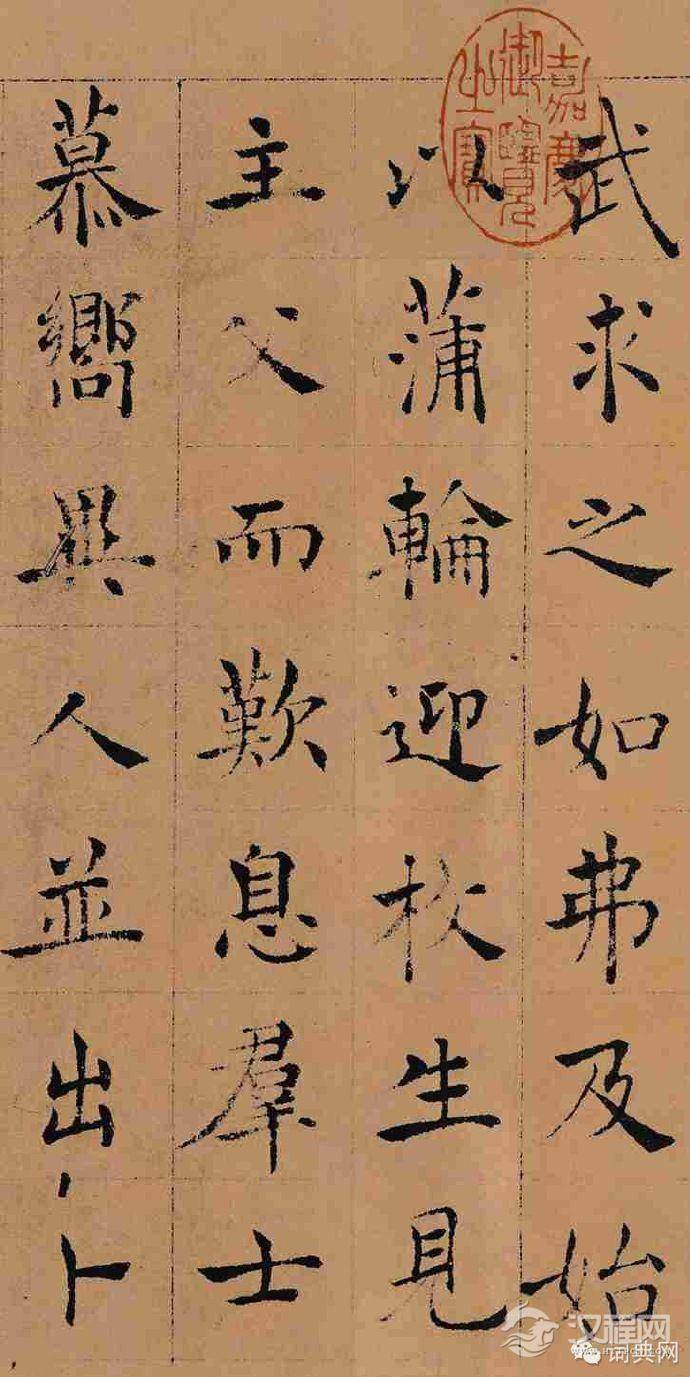 武求之如弗及始
以蒲輪迎枚生見
主父而歎息羣士
慕嚮異人並出卜
嘉慶御覽之寶
汉程网
词典网